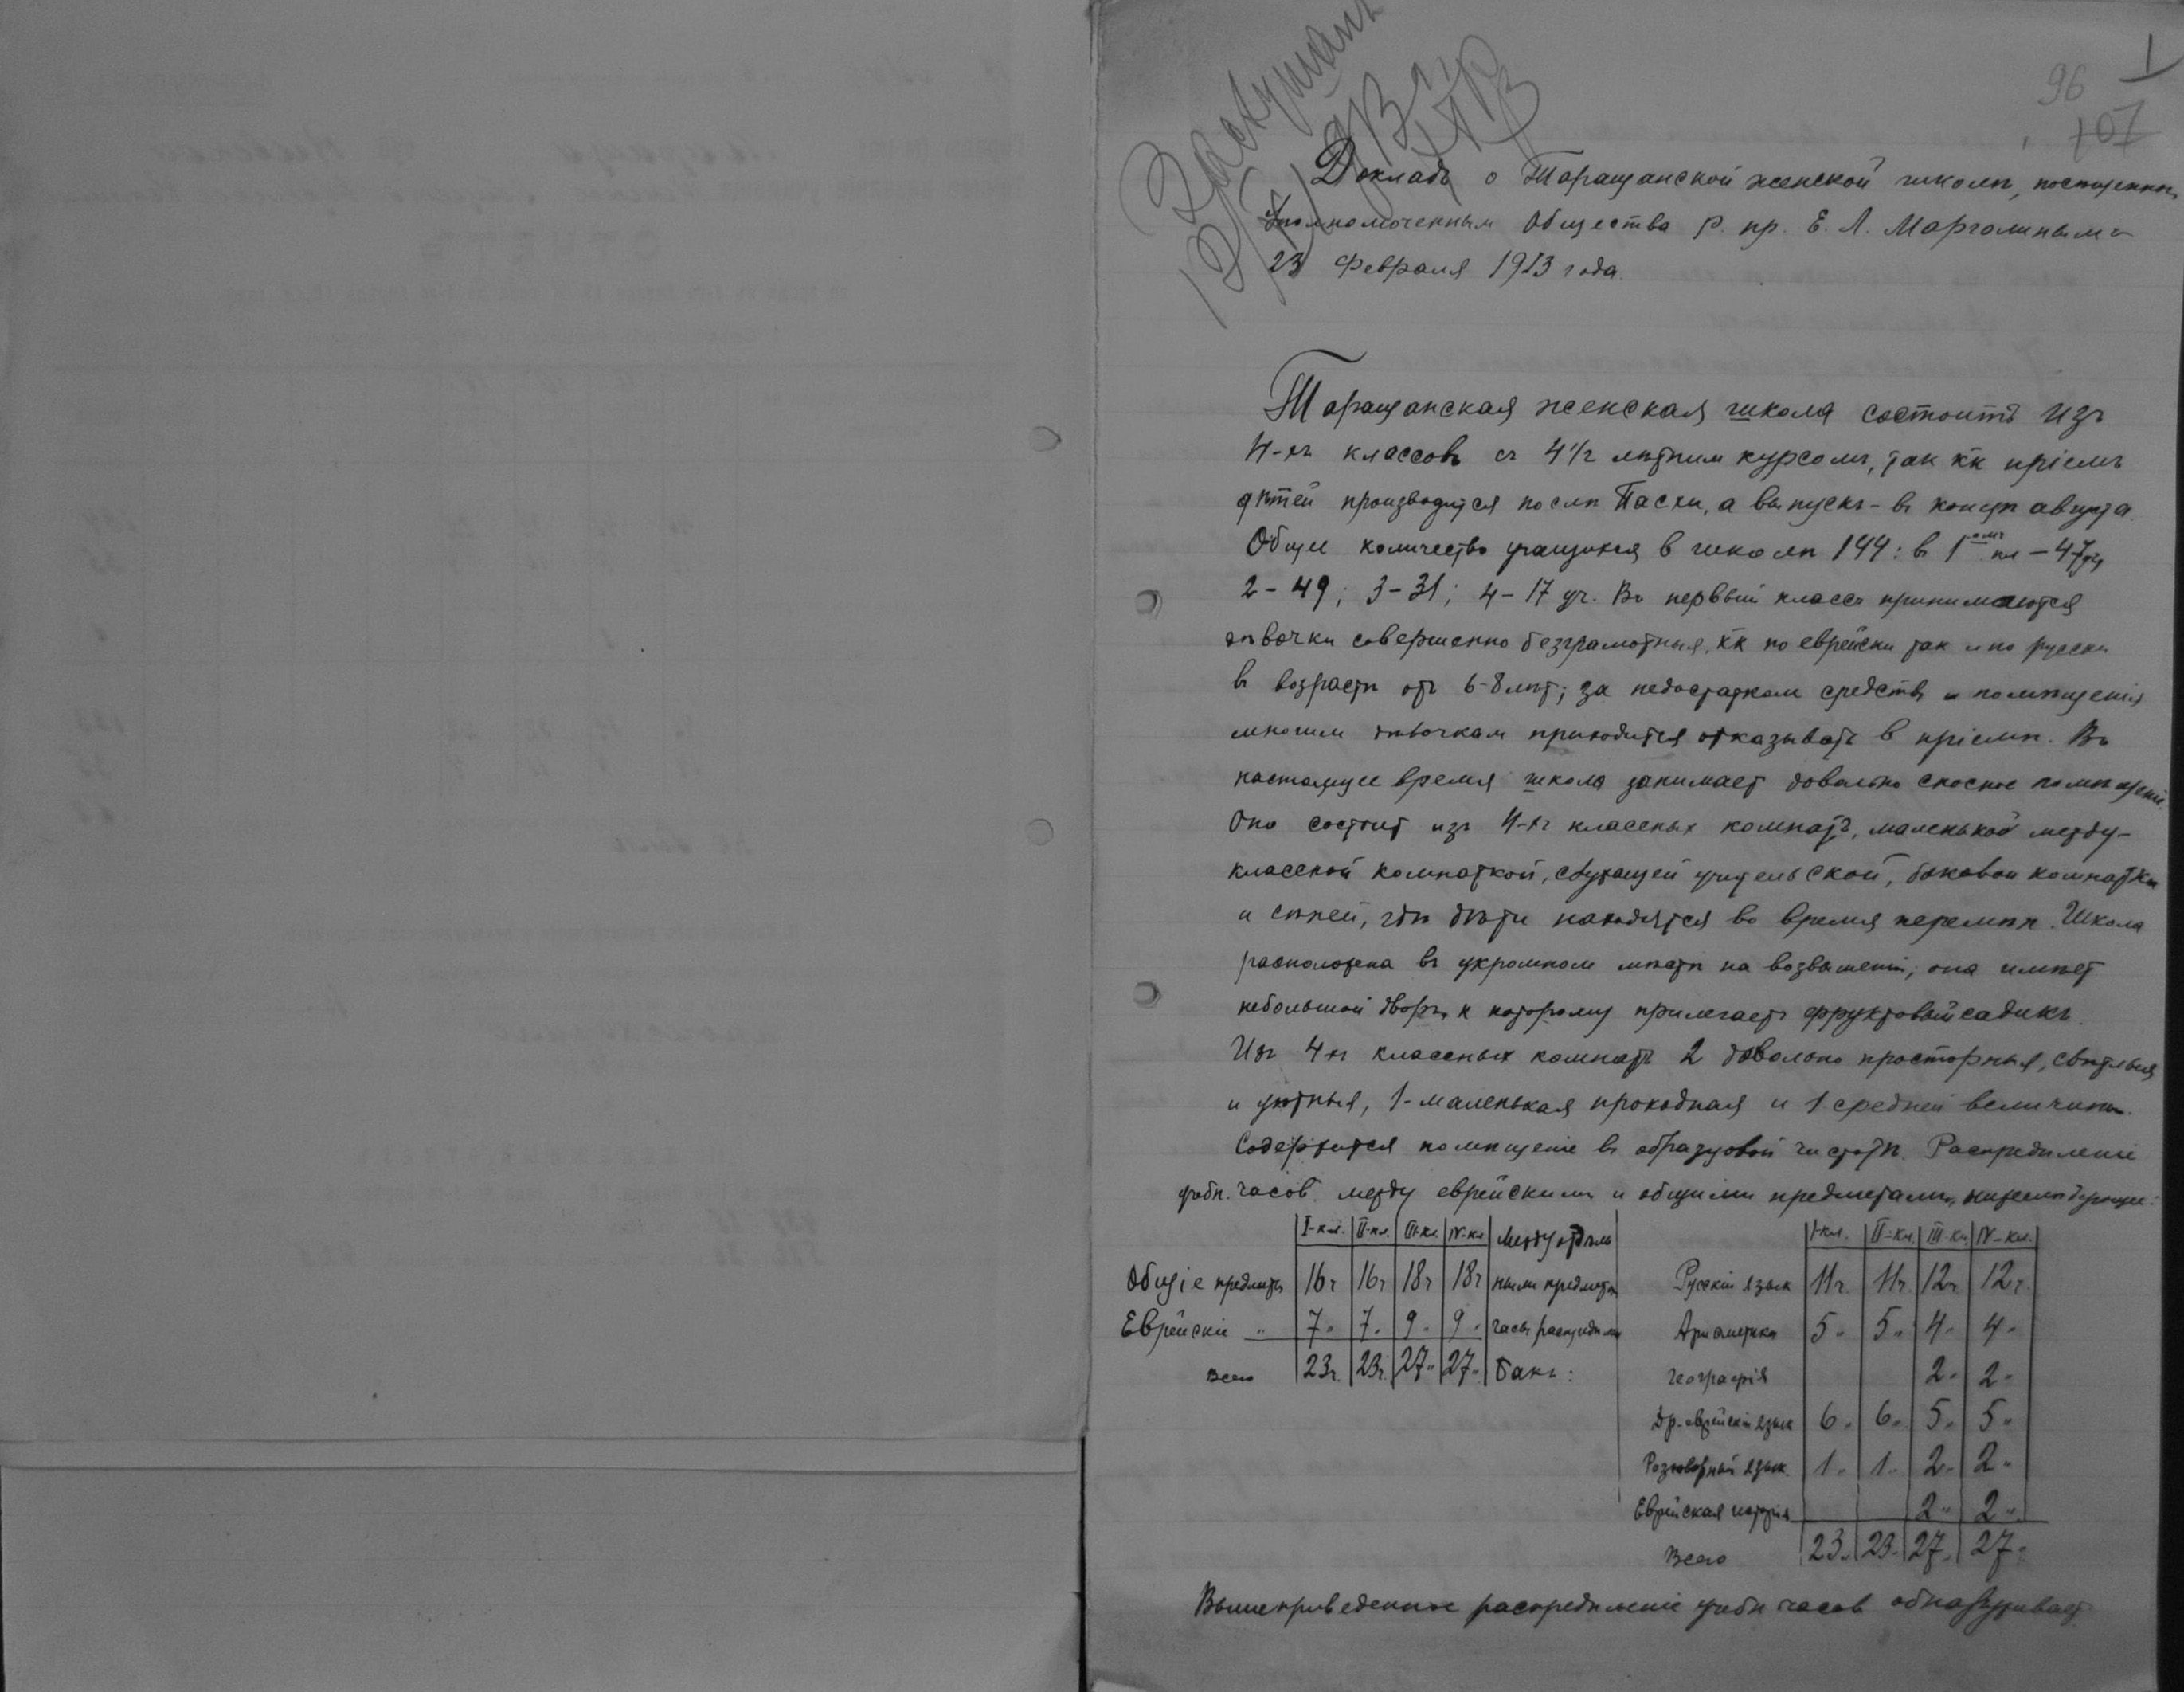 96
1
107
Докладъ о Таращанской женской школѣ, посѣщенной
Уполномоченнымъ Общества р. пр. Е. Л. Марголинымъ
23 Февраля 1913 года.
Таращанская женская школа состоитъ изъ
4-хъ классовъ съ 4½ лѣтним курсомъ, так кк пріемъ
дѣтей производится послѣ Пасхи, а выпускъ - въ концѣ августа.
Общее количество учащихся в школѣ 144: въ 1омъ кл - 47 уч,
2 - 49; 3 - 31; 4 - 17 уч. Въ первый классъ принимаются
дѣвочки совершенно безграмотныя, кк по еврейски так и по русски
въ возрастѣ отъ 6-8 лѣт; за недостатком средствъ и помѣщенія
многим дѣвочкам приходится отказывать в пріемѣ. Въ
настоящее время школа занимает довольно сносное помѣщеніе.
Оно состоит изъ 4-хъ классных комнатъ, маленькой между-
классной комнаткой, служащей учительской, боковой комнатки
и сѣней, гдѣ дѣти находятся во время перемѣн. Школа
расположена въ укромном мѣстѣ на возвышеніи, она имѣет
небольшой дворъ, к которому прилегаетъ фруктовый садикъ.
Изъ 4-хъ классных комнатъ 2 довольно просторныя, свѣтлыя
и уютныя, 1 - маленькая проходная и 1 средней величины.
Содержится помѣщеніе въ образцовой чистотѣ. Распредѣленіе
учебн. часов между еврейскими и общими предметами, нижеслѣдующее:
I-кл. II-кл. III-кл. IV-кл Между отдѣль
Общіе предметы 16ч 16ч 18ч 18ч ными предметам
Еврейскіе " 7" 7" 9" 9" часы распредѣлены
Всего 23ч. 23ч. 27" 27" такъ:
I-кл. II-кл. III-кл. IV-кл.
Русскій язык 11ч. 11ч. 12ч 12ч.
Ариѳметика 5" 5" 4" 4"
географія 2" 2"
Др.-еврейскій язык 6" 6" 5" 5"
Разговорный язык. 1" 1" 2" 2"
Еврейская исторія 2" 2"
Всего 23" 23" 27" 27"
Вышеприведенное распредѣленіе учебн часовъ обнаруживает